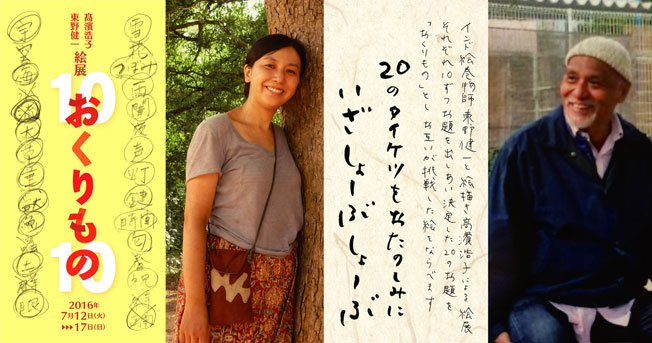 髙濱浩子
東野健一
絵展
10
おくりもの
10
2016年
7月12日(火)
▶▶▶17日(日)
雪 花 声 灯 鍵 時間
宇宙 海 眼
インド絵巻物師東野健一と絵描き髙濱浩子による絵展
それぞれ10ずつお題を出しあい決定した20のお題を
「おくりもの」とし お互いが挑戦した絵をならべます
20のタイケツをおたのしみに
いざしょーぶしょーぶ